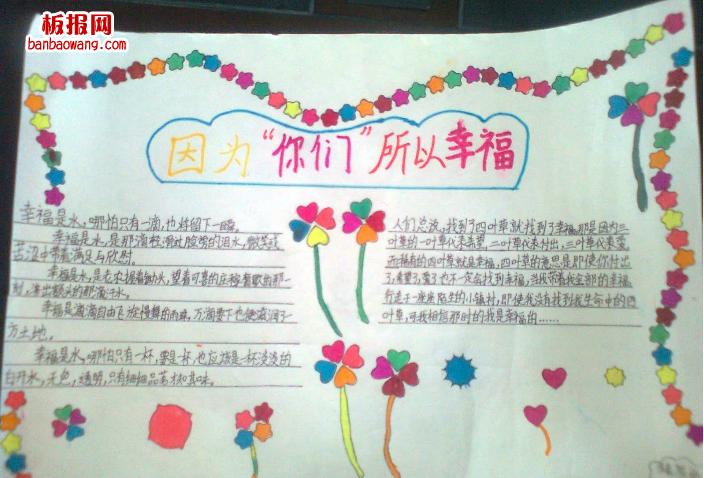 板报网
banbaowang.com
因为“你们”所以幸福
幸福是水，哪怕只有一滴，也将留下一瞬。
幸福是水，是那滴轻滑过脸旁的泪水，微笑
苦涩中带着满足与欣慰。
幸福是水，是老农握着锄头，望着可喜的庄稼
刻，渗出额头的那滴汗水。
幸福是滴滴自由飞旋慢舞的雨珠，万滴
方土地。
幸福是水，哪怕只有一杯，要是一杯，也应该是一杯淡淡的
白开水，无色，透明，只有细细品茗才知其味。
人们总说，找到了四叶草就找到了幸福，那是因为三
叶草的一叶草代表希望，二叶草代表付出，三叶草代表爱，
而稀有的四叶草就是幸福，四叶草的意思是即使你付出
了，希望了，爱了也不一定会找到幸福，当我带着我全部的幸福，
行走于一座座陌生的小镇村，即使我没有找到我生命中的四
叶草，可我相信那时的我是幸福的……